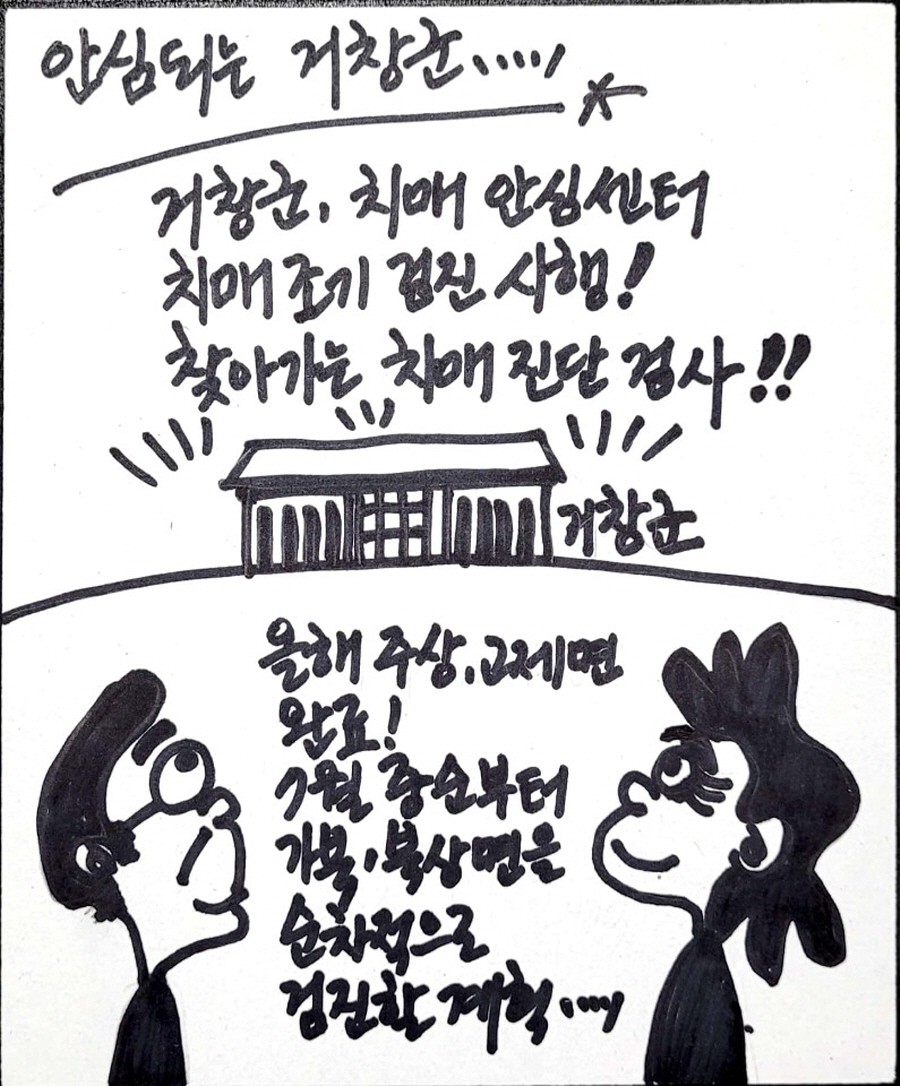 안심되는 거창군.....
거창군, 치매 안심센터
치매 조기 검진 시행!
찾아가는 치매 진단 검사!!
거창군
올해 주상.고제면
완료!
7월 중순부터
가북.북상면을
순차적으로
검진할 계획....